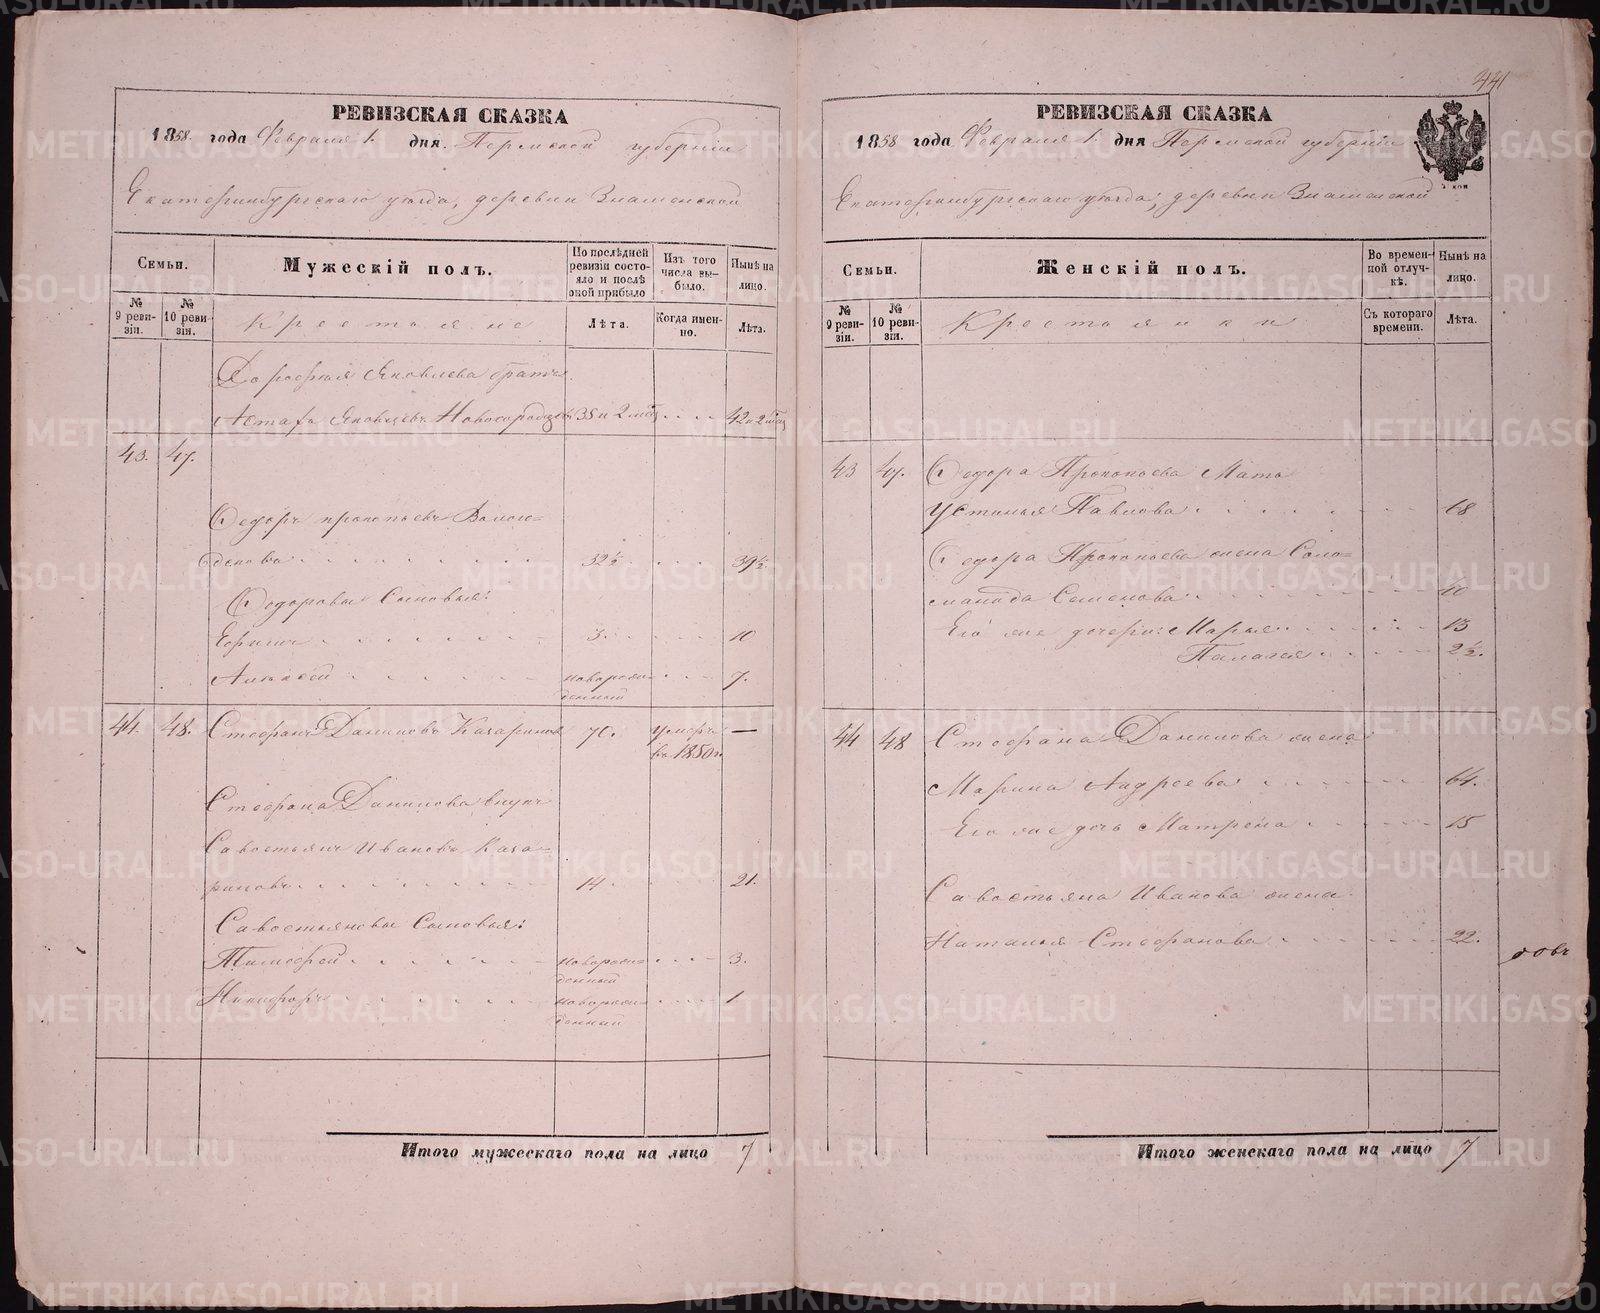 441
РЕВИЗСКАЯ СКАЗКА
1858 года Февраля 1. дня. Пермской губернiи
Екатеринбургскаго уѣзда, деревни Знаменской
Семьи.
Мужескiй полъ.
По послѣдней ревизiи состояло и послѣ оной прибыло
Изъ того числа выбыло.
Нынѣ на лицо.
№ 9 ревизiи.
№ 10 ревизiи.
Крестьяне
Лѣта.
Когда именно.
Лѣта.
Дорофея Яковлева братъ
Астафъ Яковлевъ Новогородцовъ 35 и 2 мѣс. 42 и 2 мѣс.
43. 47.
Федоръ Прокопьевъ
32½ 39½
Федоровы Сыновья:
3. 10
Алексѣй новорожденный 7.
44. 48. Стефанъ Даниловъ Качариновъ 70. умеръ въ 1850 г. —
Стефана Данилова внукъ
Савостьянъ Ивановъ Кача-
риновъ 14 21.
Савостьяновы Сыновья:
Тимофей новорожденный 3.
Никифоръ новорожденный 1
Итого мужескаго пола на лицо 7
РЕВИЗСКАЯ СКАЗКА
1858 года Февраля 1. дня Пермской губернiи
Екатеринбургскаго уѣзда, деревни Знаменской
Семьи.
Женскiй полъ.
Во временной отлучкѣ.
Нынѣ на лицо.
№ 9 ревизiи.
№ 10 ревизiи.
Крестьянки
Съ котораго времени.
Лѣта.
43 47. Федора Прокопьева Мать
Устинья Павлова 68
Федора Прокопьева жена Соло-
монида Семенова 40
Его же дочери: Марья 13
Палагея 2½.
44 48 Стефана Данилова жена
Марина Андреева 64.
Его же дочь Матрена 15
Савостьяна Иванова жена
Наталья Стефанова 22.
Итого женскаго пола на лицо 7
METRIKI.GASO-URAL.RU